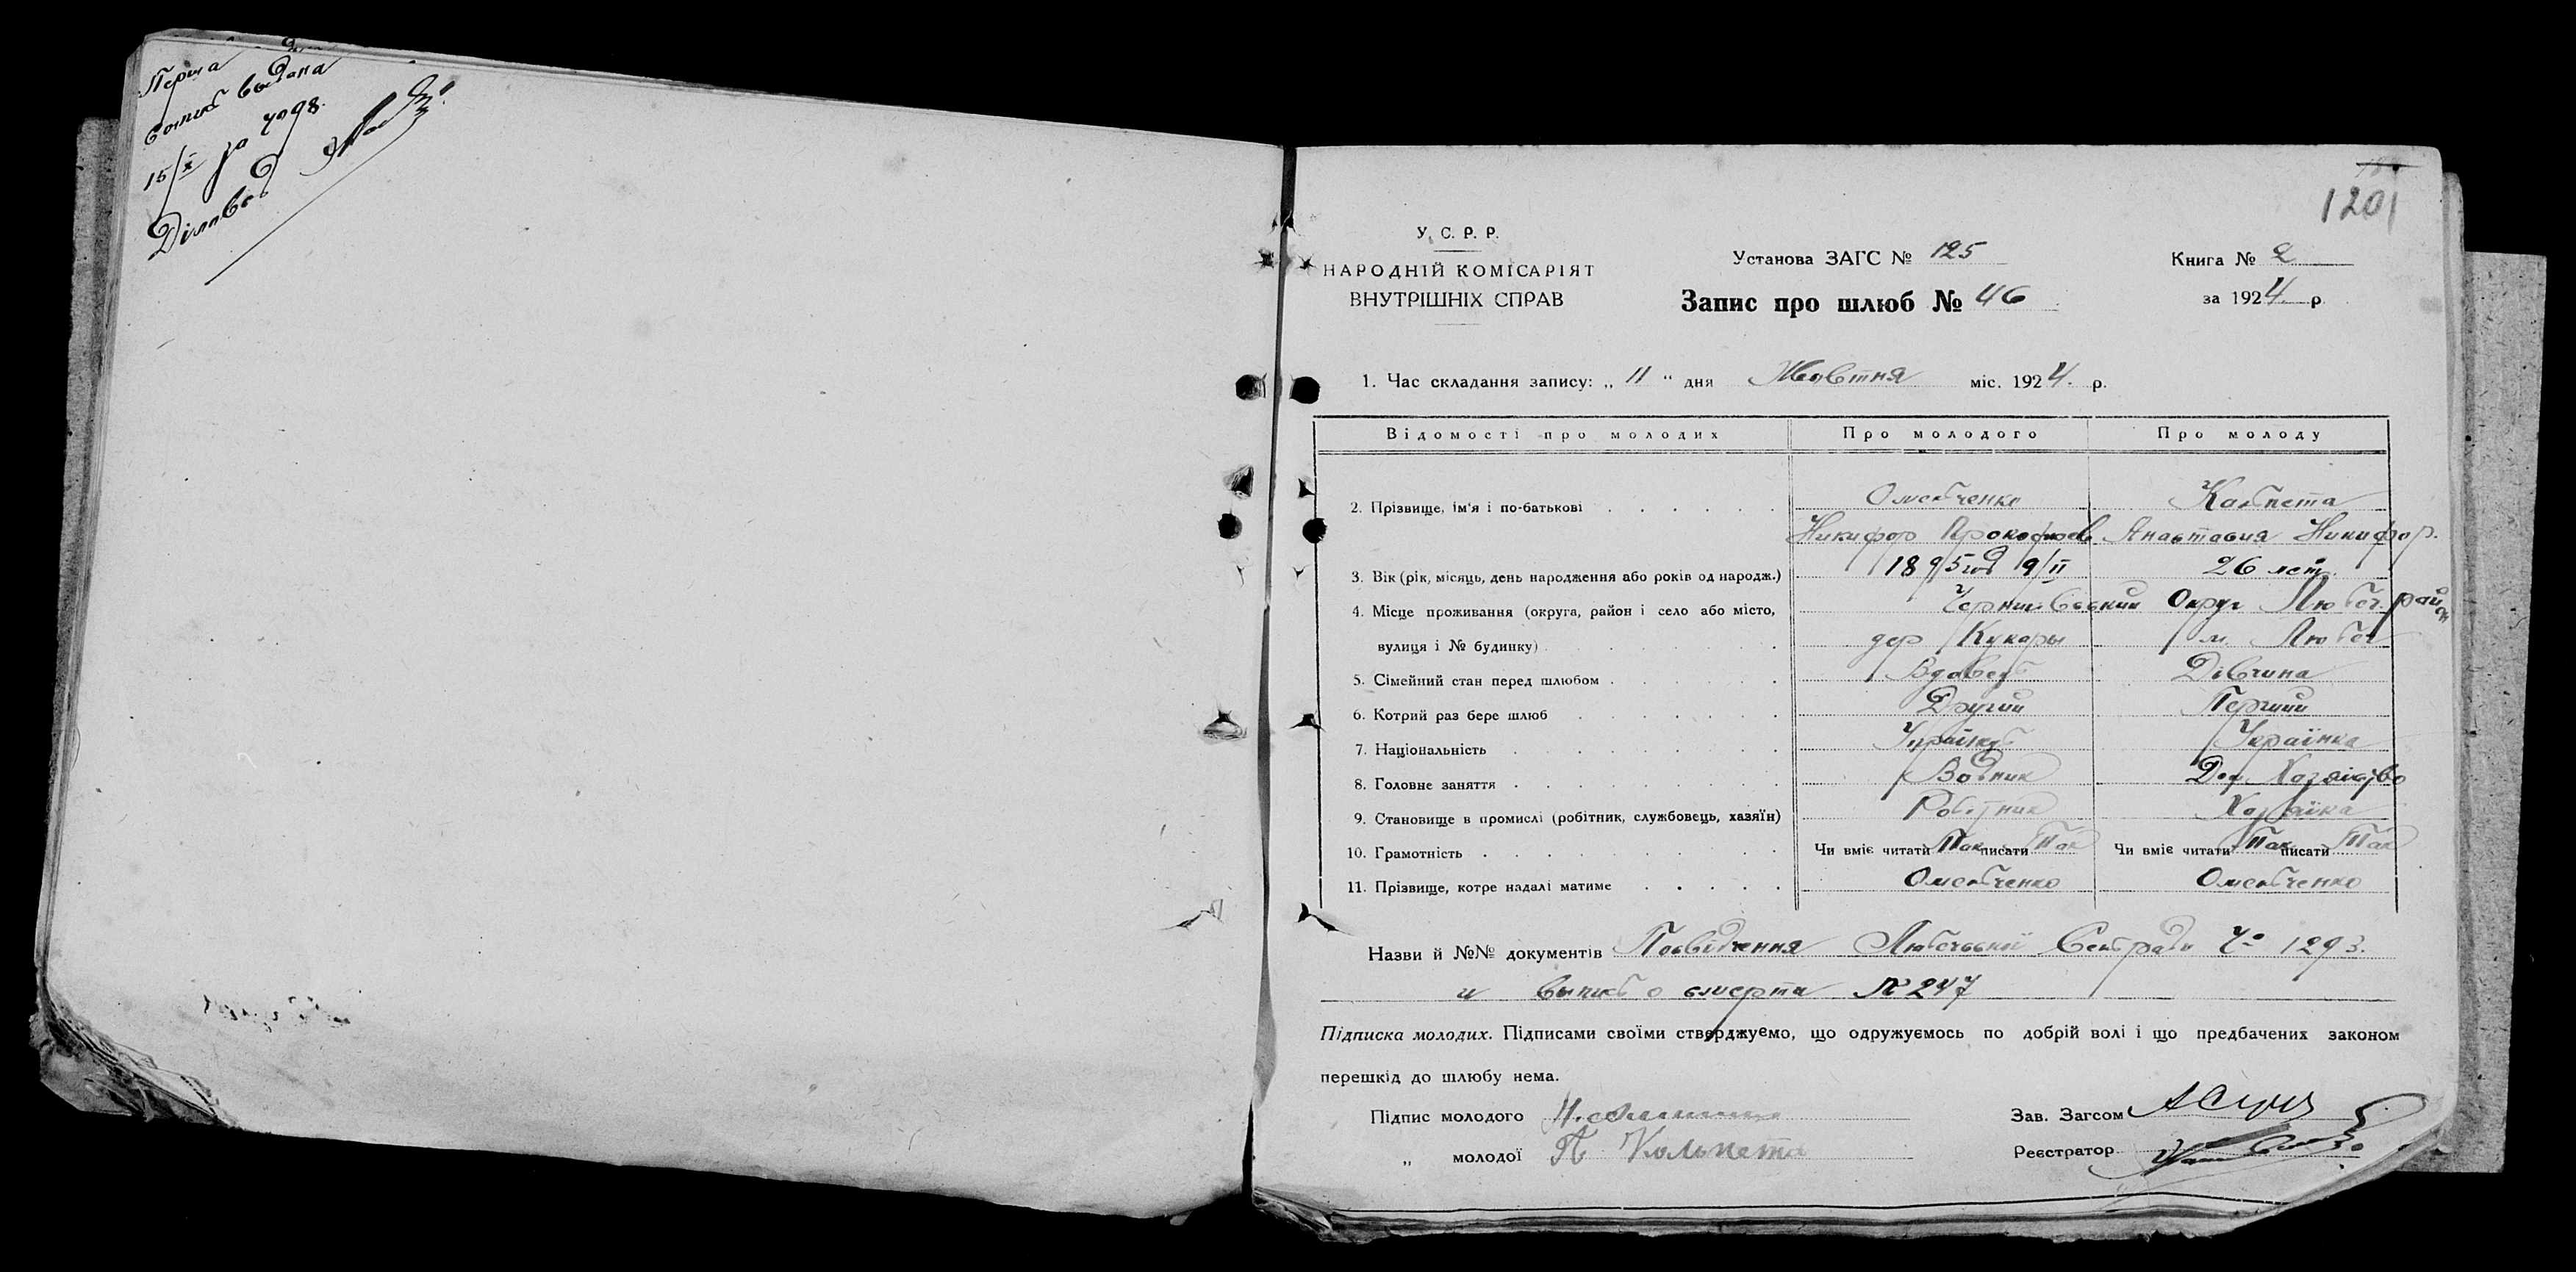 Перша
выдана
15/X за № 98.
Діловод
1201
У. С. Р. Р.
НАРОДНІЙ КОМІСАРІЯТ
ВНУТРІШНІХ СПРАВ
Установа ЗАГС № 125
Книга № 2
Запис про шлюб № 46
за 1924 р.
1. Час складання запису: „ 11 “ дня Жовтня міс. 1924. р.
Відомості про молодих Про молодого Про молоду
2. Прізвище, ім'я і по-батькові Омельченко Кальпета
Никифор Прокофиев Анастасия Никифор.
3. Вік (рік, місяць, день народження або років од народж.) 1895 год 9/II 26 лет
4. Місце проживання (округа, район і село або місто, Чернигівський Округ Любеч. район
вулиця і № будинку) дер Кукары м. Любеч
5. Сімейний стан перед шлюбом Вдовець Дівчина
6. Котрий раз бере шлюб Другий Перший
7. Національність Українець Українка
8. Головне заняття Водник Дом. Хозяйство
9. Становище в промислі (робітник, службовець, хазяїн) Робітник Хозяйка
10. Грамотність Чи вміє читати Так писати Так Чи вміє читати Так писати Так
11. Прізвище, котре надалі матиме Омельченко Омельченко
Назви й №№ документів Посвідчення Любечської Сельради № 1293.
и выпись о смерти № 247
Підписка молодих. Підписами своїми стверджуємо, що одружуємось по добрій волі і що предбачених законом
перешкід до шлюбу нема.
Підпис молодого
Зав. Загсом
„ молодої Кольпета
Реєстратор